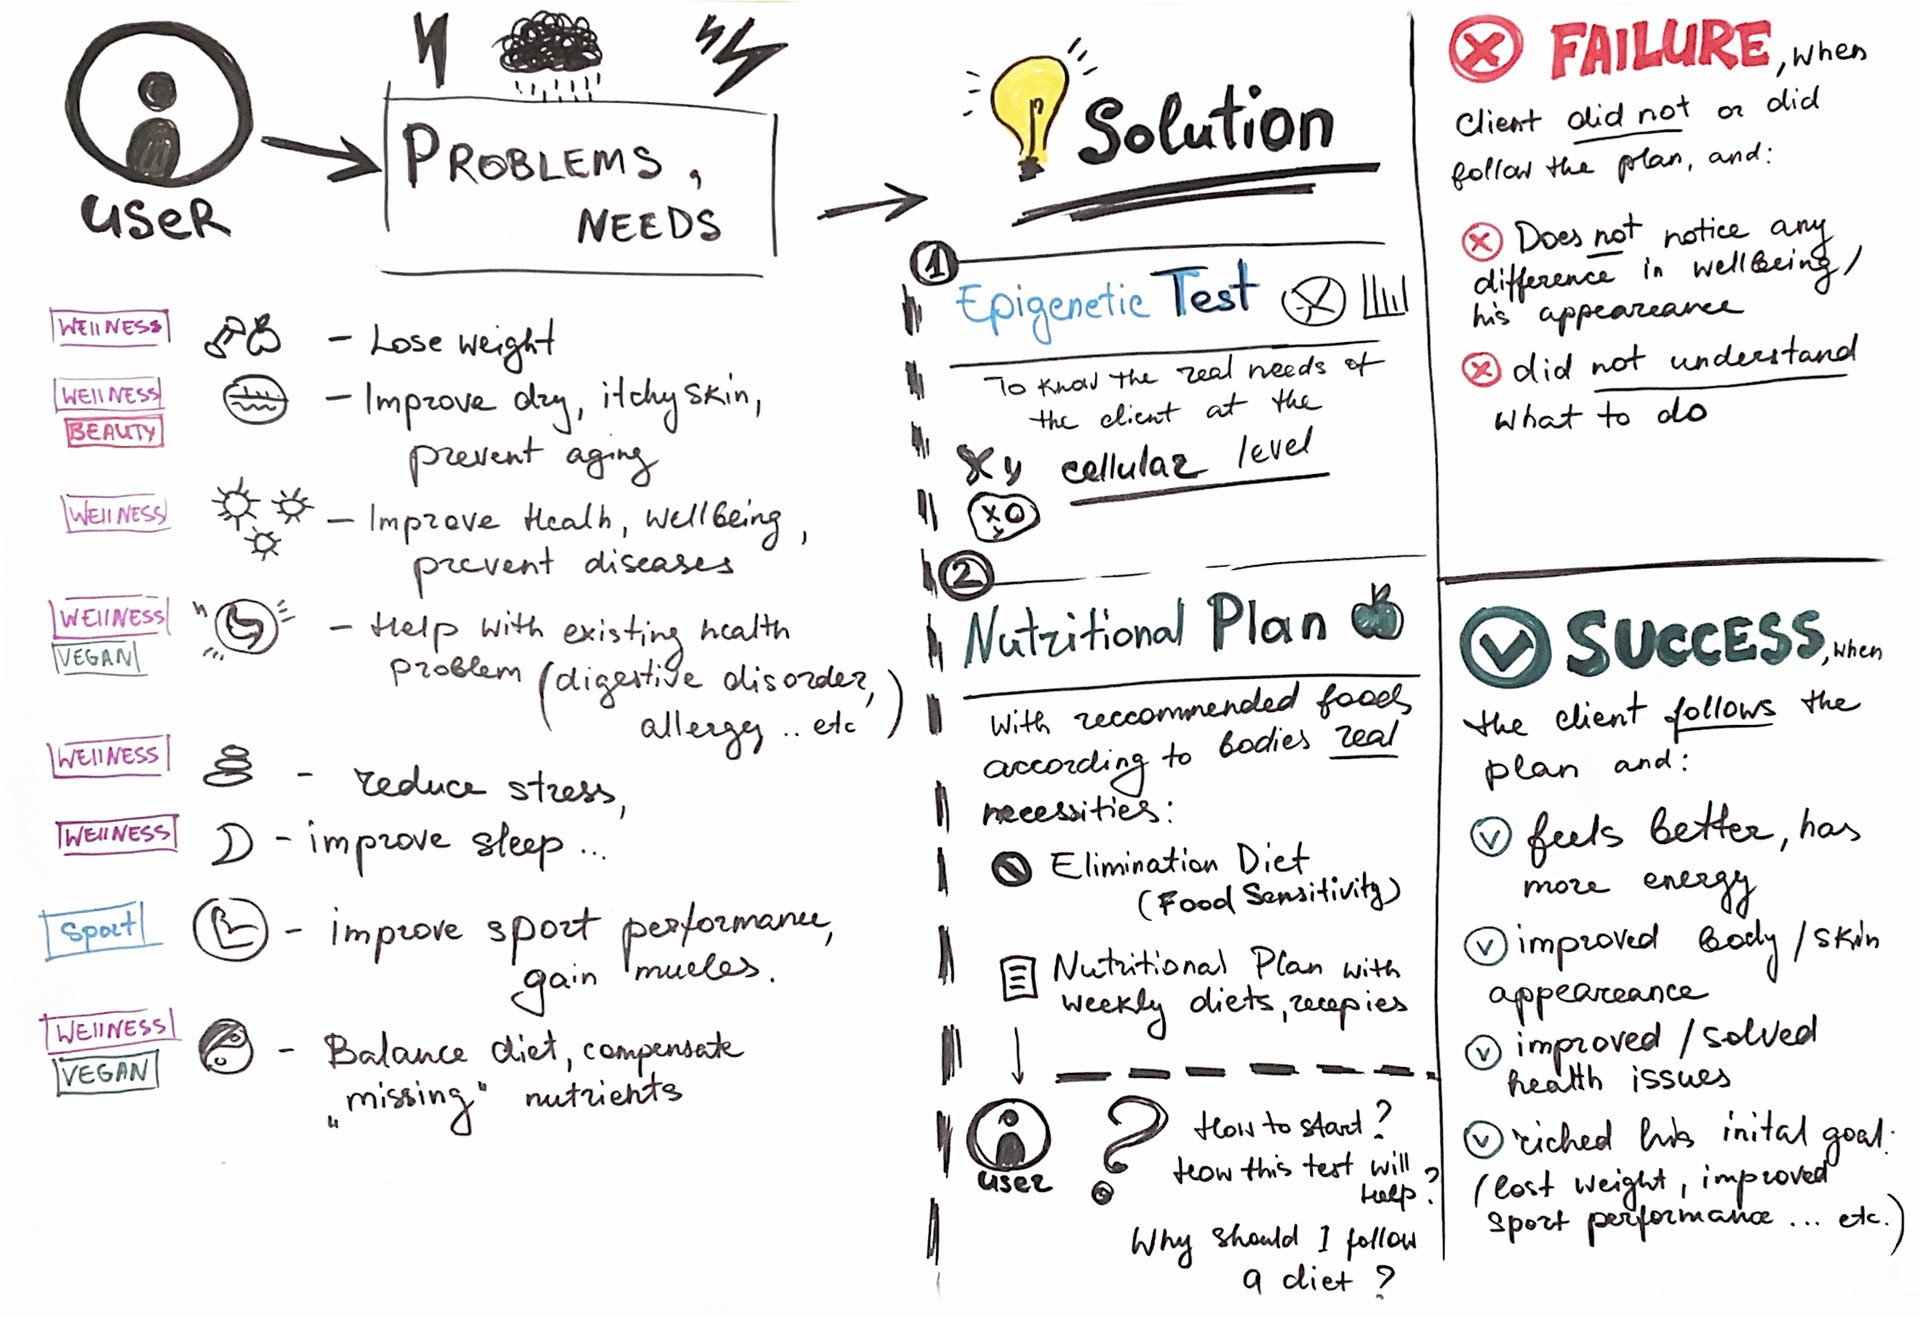 USER
PROBLEMS,
NEEDS
WEllNESS
- Lose weight
WEllNESS
BEAUTY
- Improve dry, itchy skin,
prevent aging
WEllNESS
- Improve Healh, wellbeing,
prevent diseases
WEllNESS
VEGAN
- Help with existing health
problem (digestive disorder,
allergy .. etc)
WEllNESS
- reduce stress,
WEllNESS
- improve sleep ...
Sport
- improve sport performance,
gain mucles.
WEllNESS
VEGAN
- Balance diet, compensate
„missing“ nutrients
Solution
1
Epigenetic Test
To know the real needs of
the client at the
XY cellular level
XO
Y
2
Nutritional Plan
with reccommended foods
according to bodies real
necessities:
Elimination Diet
(Food Sensitivity)
Nutritional Plan with
weekly diets, recepies
user
?
How to start?
How this test will
help?
Why should I follow
a diet ?
FAILURE, when
Client did not or did
follow the plan, and:
Does not notice any
difference in wellbeing /
his appeareance
did not understand
what to do
SUCCESS, when
the client follows the
plan and:
feels better, has
more energy
improved body / skin
appeareance
improved / solved
health issues
riched his inital goal:
(lost weight, improved
sport performance ... etc.)